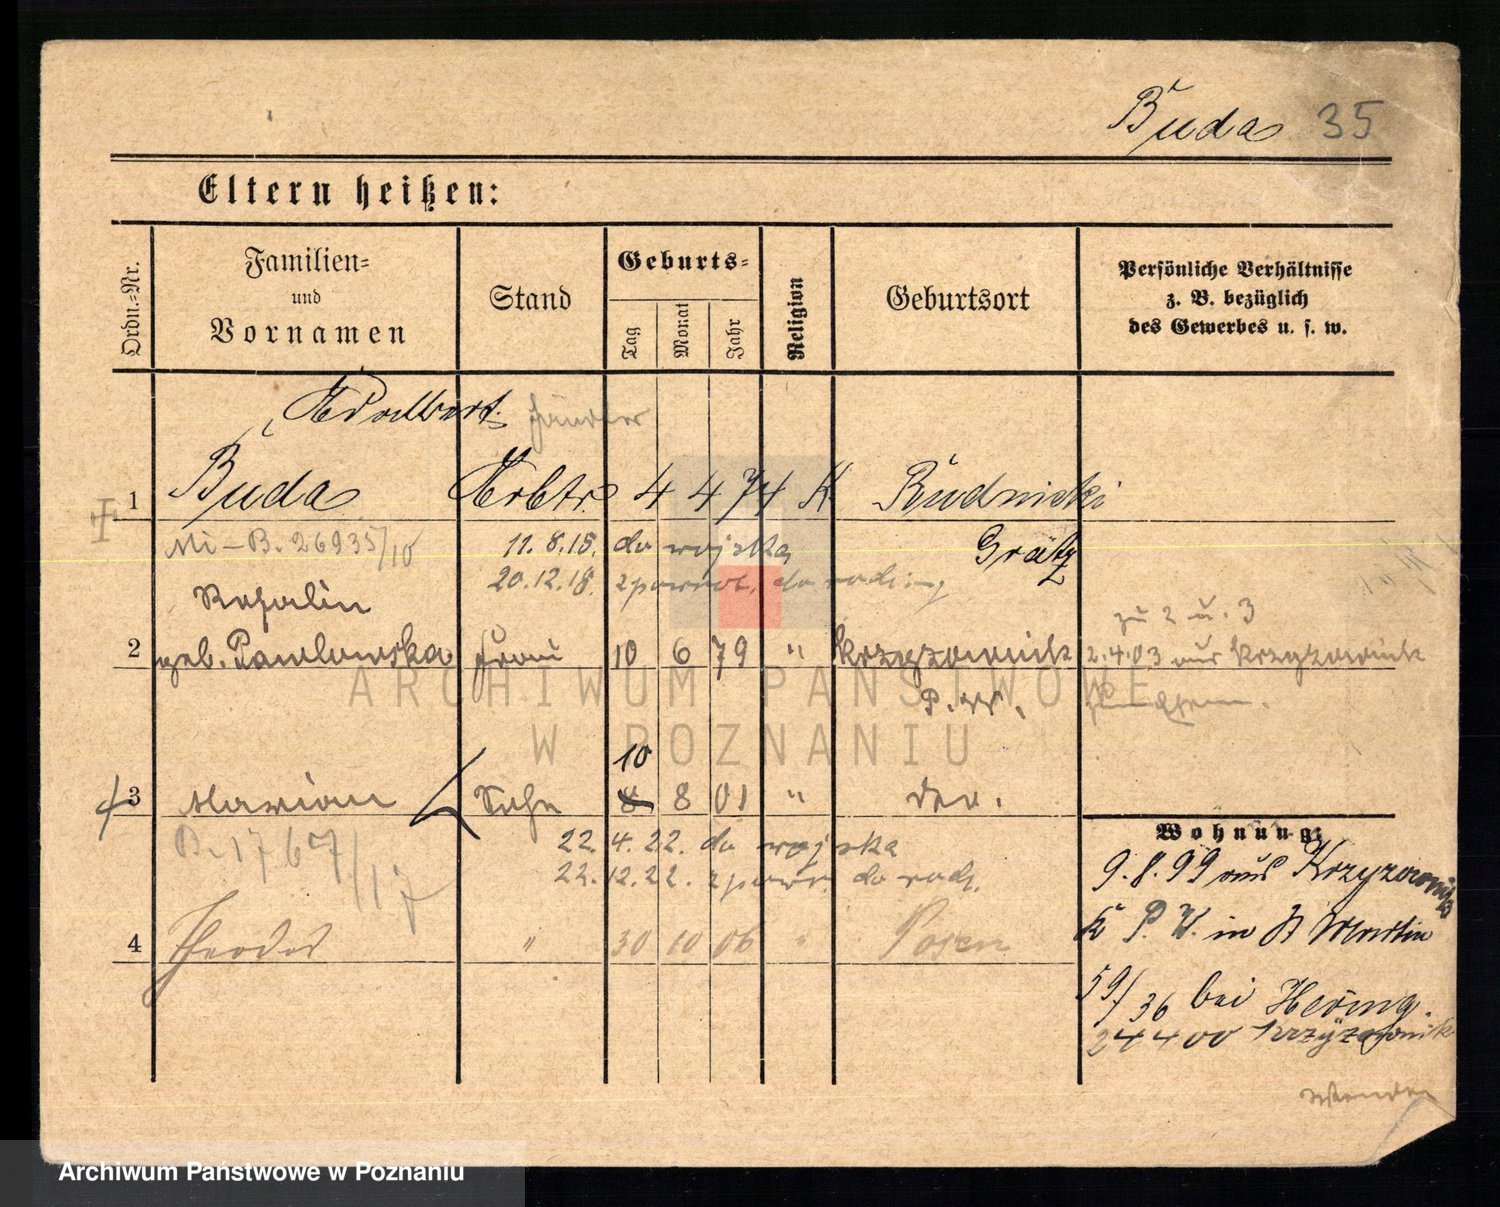 Buda 35
Eltern heißen:
Ordn.-Nr.
Familien-
und
Vornamen
Stand
Geburts-
Tag
Monat
Jahr
Religion
Geburtsort
Persönliche Verhältnisse
z. B. bezüglich
des Gewerbes u. s. w.
Adalbert. Händler
1 Buda Arbtr. 4 4 74 K Rudnicki
Grätz
Mi-B. 26935/10 11. 8. 15. do wojska
20. 12. 18. zpowrot. do rodziny
Rosalie
zu 2 u. 3
2 geb. Pawlowska Frau 10 6 79 " Krzyzownik 2.4.03 aus Krzyzownik
P. W.
10
3 Marian Sohn 8 8 01 " do.
B. 1767/17
22. 4. 22. do wojska
22. 12. 22. zpowr. do rodz.
4 " 30 10 06 " Posen
Wohnung:
9. 8. 99 aus Krzyzownik
P. W. in St Martin
59/36 bei Hering.
24400 Krzyzownik
Wenden
ARCHIWUM PAŃSTWOWE
W POZNANIU
Archiwum Państwowe w Poznaniu